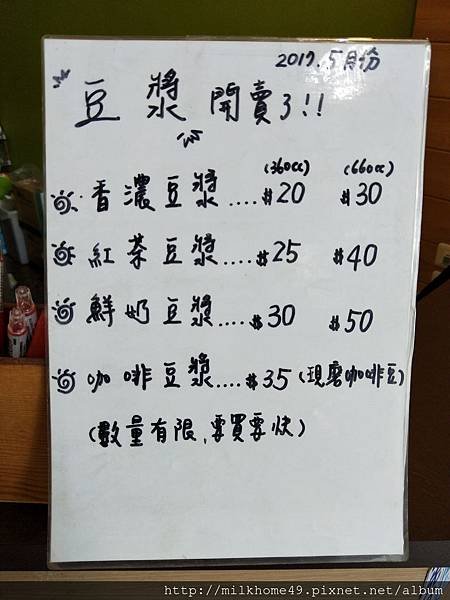 2017.5月份
豆漿開賣了!!
(360cc) (660cc)
香濃豆漿....$20 $30
紅茶豆漿....$25 $40
鮮奶豆漿....$30 $50
咖啡豆漿....$35(現磨咖啡豆)
(數量有限、要買要快)
http://milkhome49.pixnet.net/album